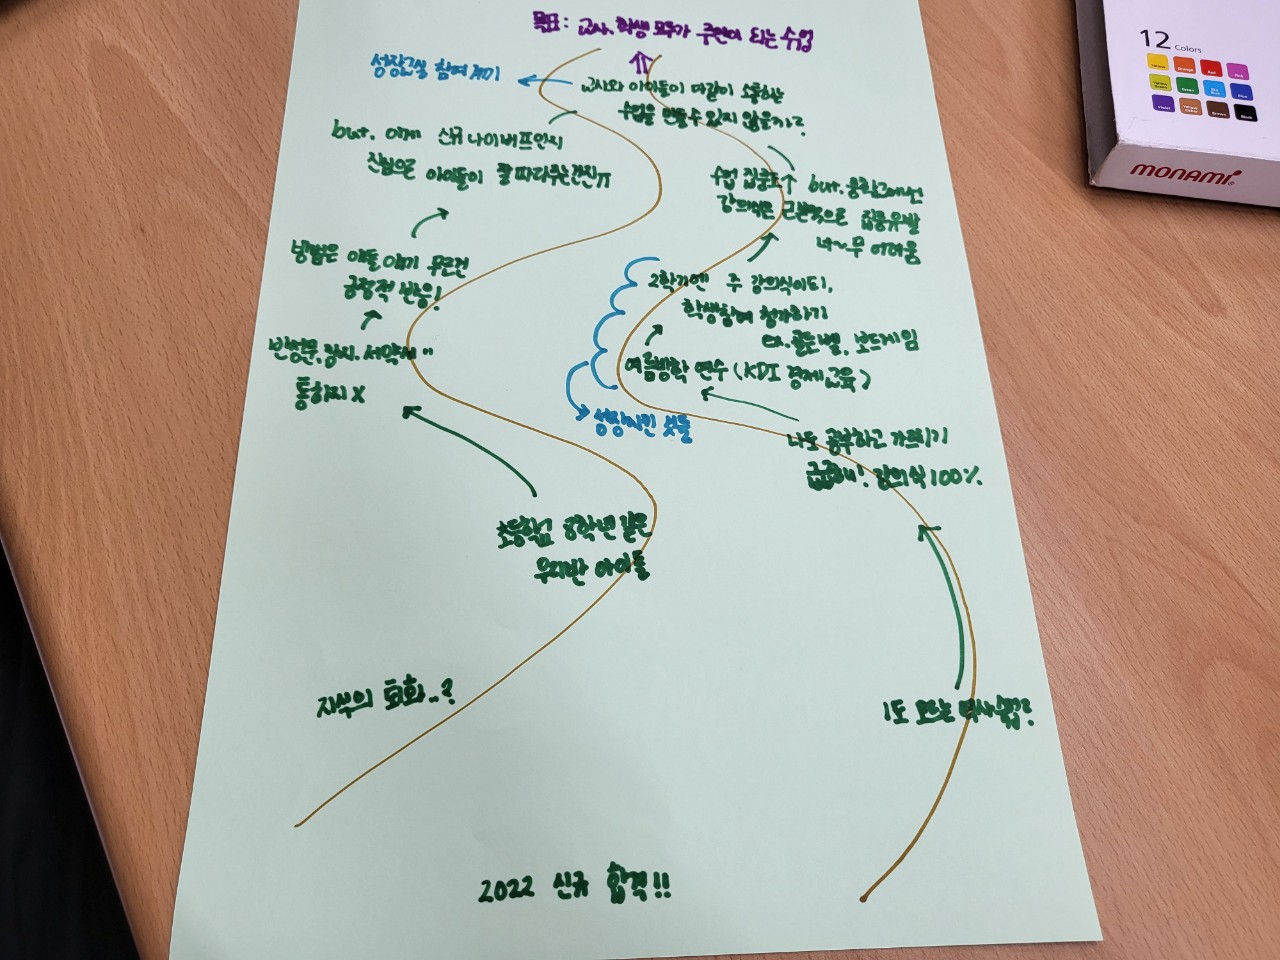 목표: 교사, 학생 모두가 주인이 되는 수업
성장교실 참여 계기
교사와 아이들이 다같이 소통하는
수업을 만들 수 있지 않을까?
but. 이게 신규 나이버프인지
진심으로 아이들이 잘 따라주는건진ㅠ
수업 집중도↑ but. 중학교에선
강의식은 근본적으로 집중유발
너~무 어려움
방법은 아이들 이야기 무조건
긍정적 반응!
2학기엔 주 강의식이되,
학생참여 첨가하기
ex. 골든벨, 보드게임
반성문, 일지, 서약서..
통하지 X
여름방학 연수 (KDI 경제교육)
성장시킨 것들
나도 공부하고 가르치기
급급해! 강의식 100%
초등학교 중학년 같은
우리반 아이들
지식의 퇴화..?
1도 모르는 역사수업?
2022 신규 합격!!
12 Colors
Yellow
Orange
Red
Pink
Yellow Green
Green
Sky Blue
Blue
Violet
Yellow Ochre
Brown
Black
MONAMI